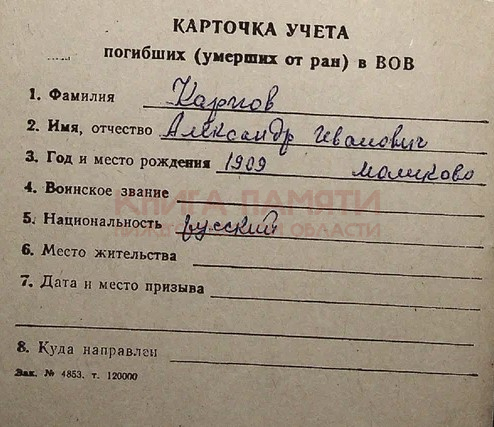 КАРТОЧКА УЧЕТА
погибших (умерших от ран) в ВОВ
1. Фамилия Карпов
2. Имя, отчество Александр Иванович
3. Год и место рождения 1909 Моликово
4. Воинское звание
КНИГА ПАМЯТИ
5. Национальность русский
ОБЛАСТИ
6. Место жительства
7. Дата и место призыва
8. Куда направлен
Зак. № 4853. т. 120000